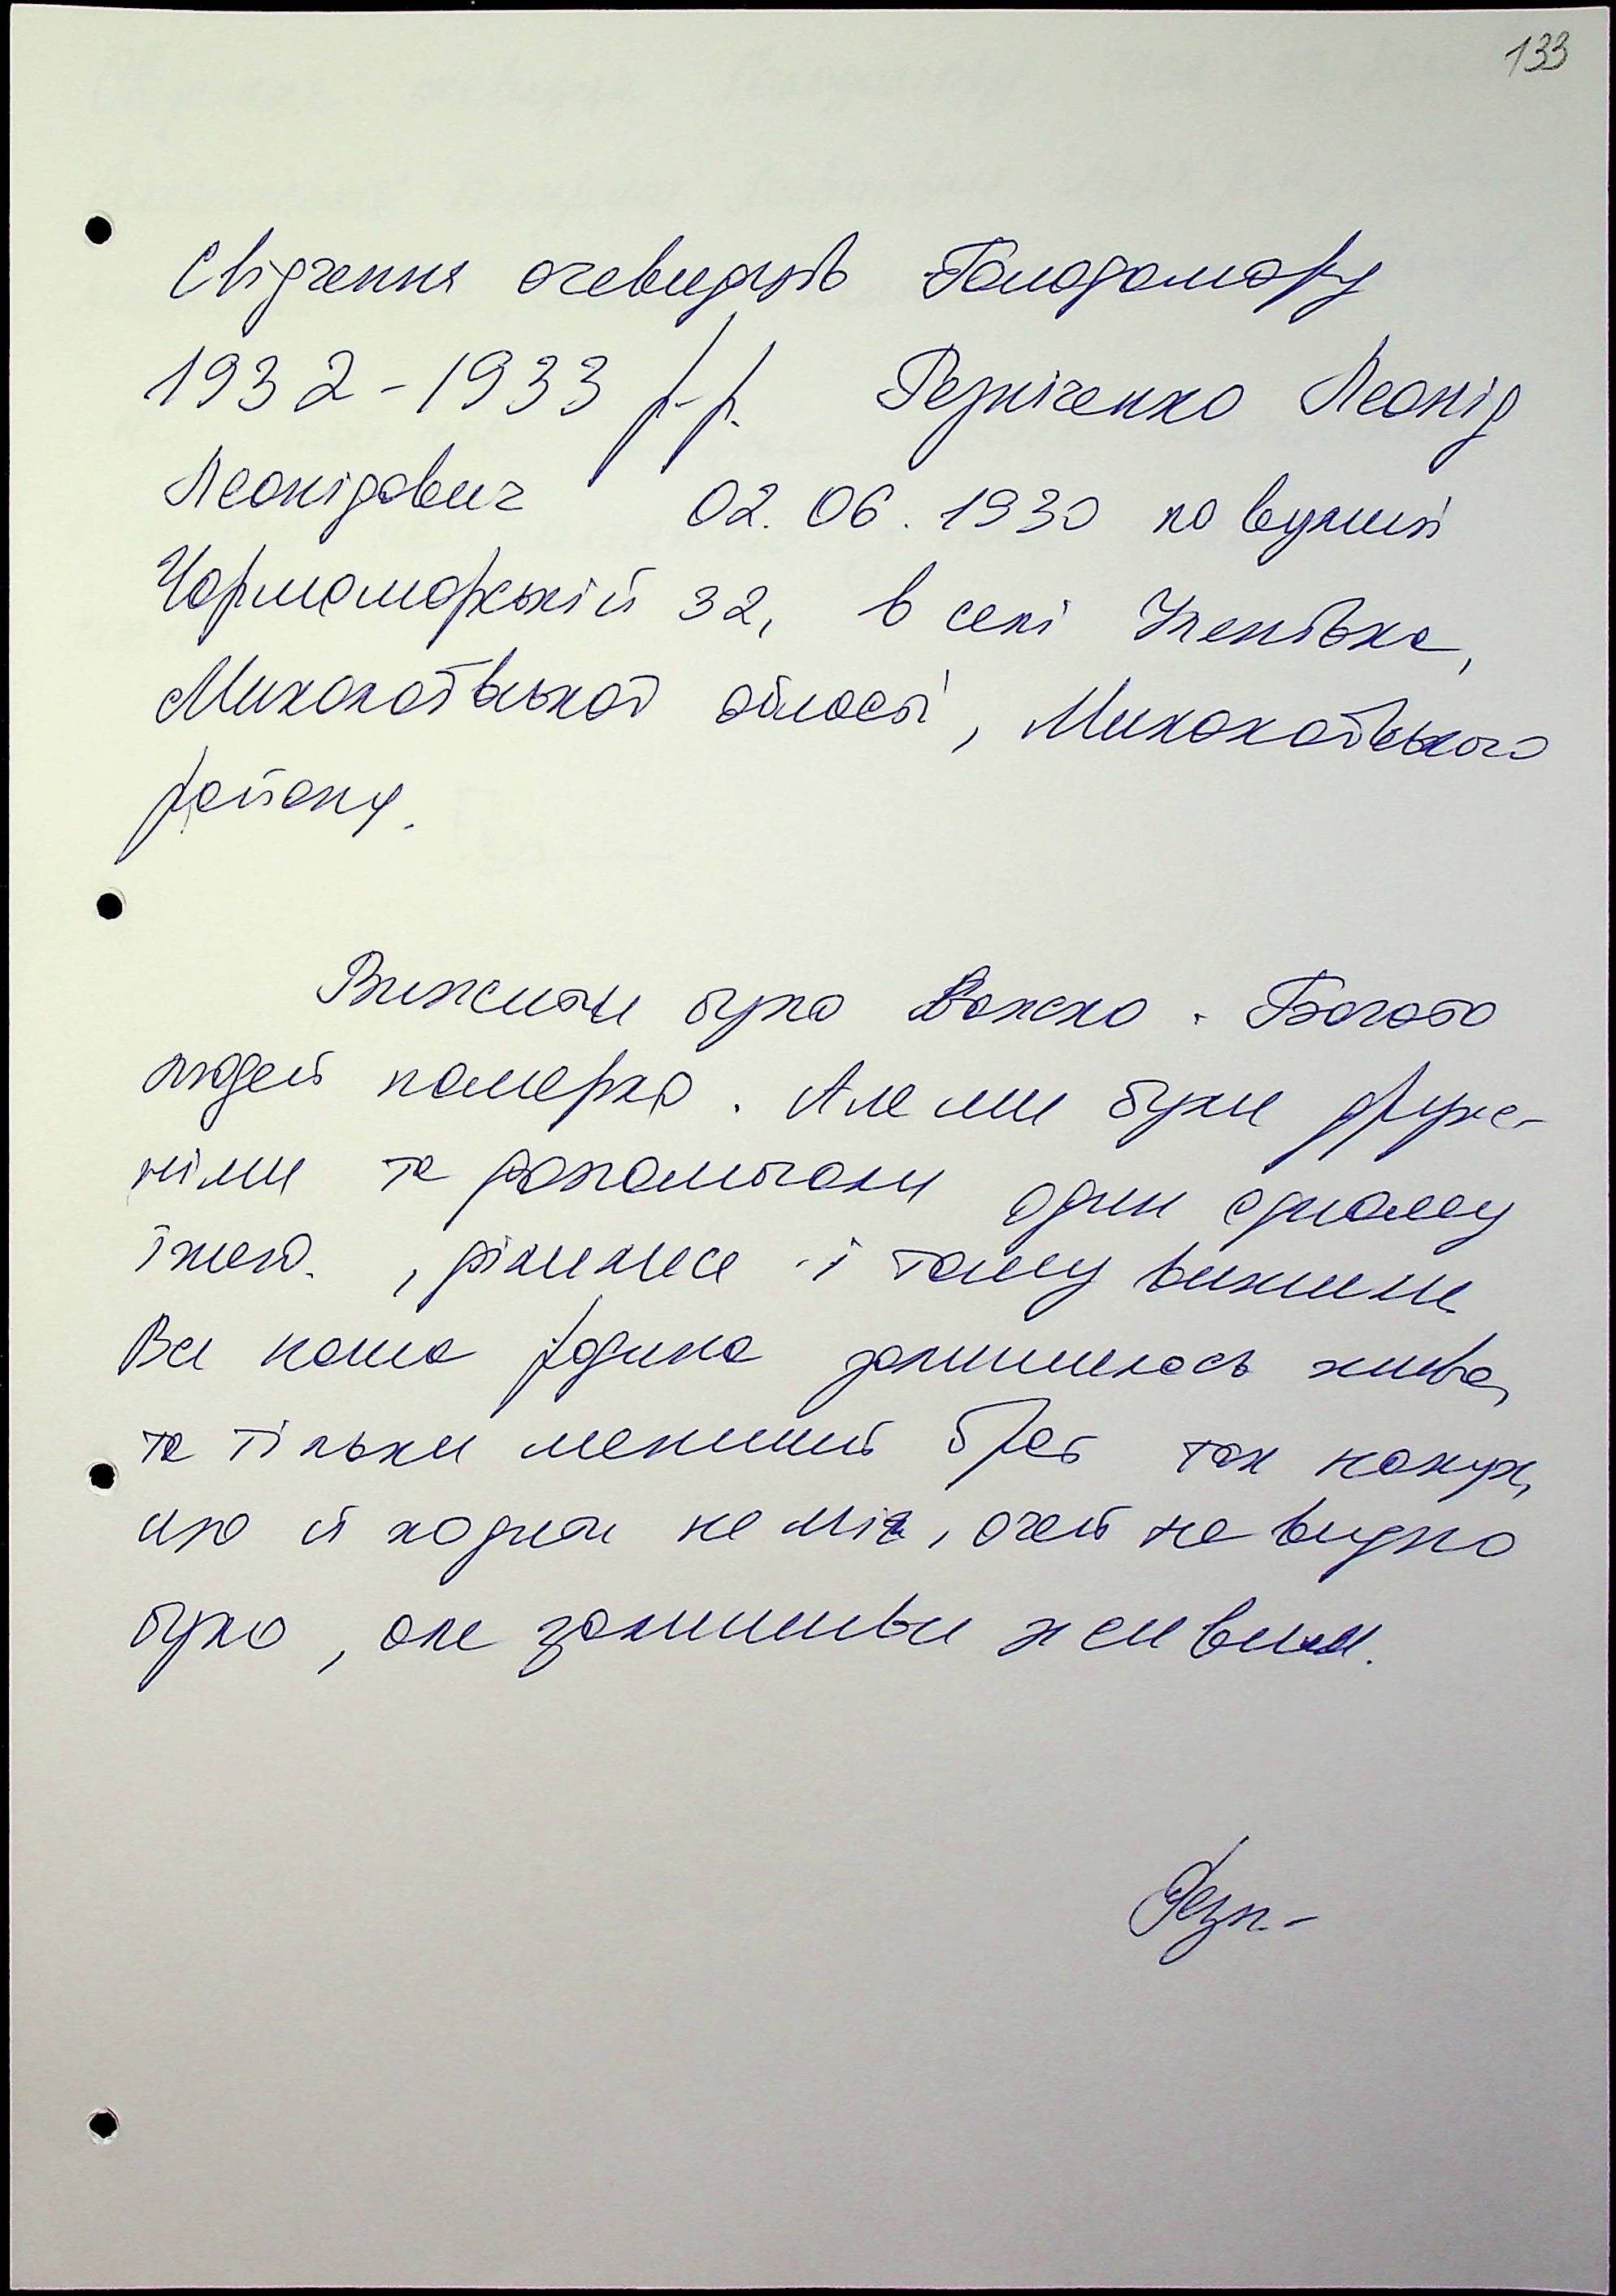 133
Свідчення очевидців Голодомору
1932-1933 р.р. Резніченко Леонід
Леонідович 02.06.1930 по вулиці
Чорноморській 32, в селі Улянівка,
Миколаївської області, Миколаївського
району.
Вижити було Важко. Багато
людей померло. Але ми були друж-
німи та допомагали один одному
їжею. , ділилися і тому вижили
Вся наша родина залишилась жива,
та тільки менший брат так напух,
що й ходити не міг, очей не видно
було, але залишивсь живим.
Резн-